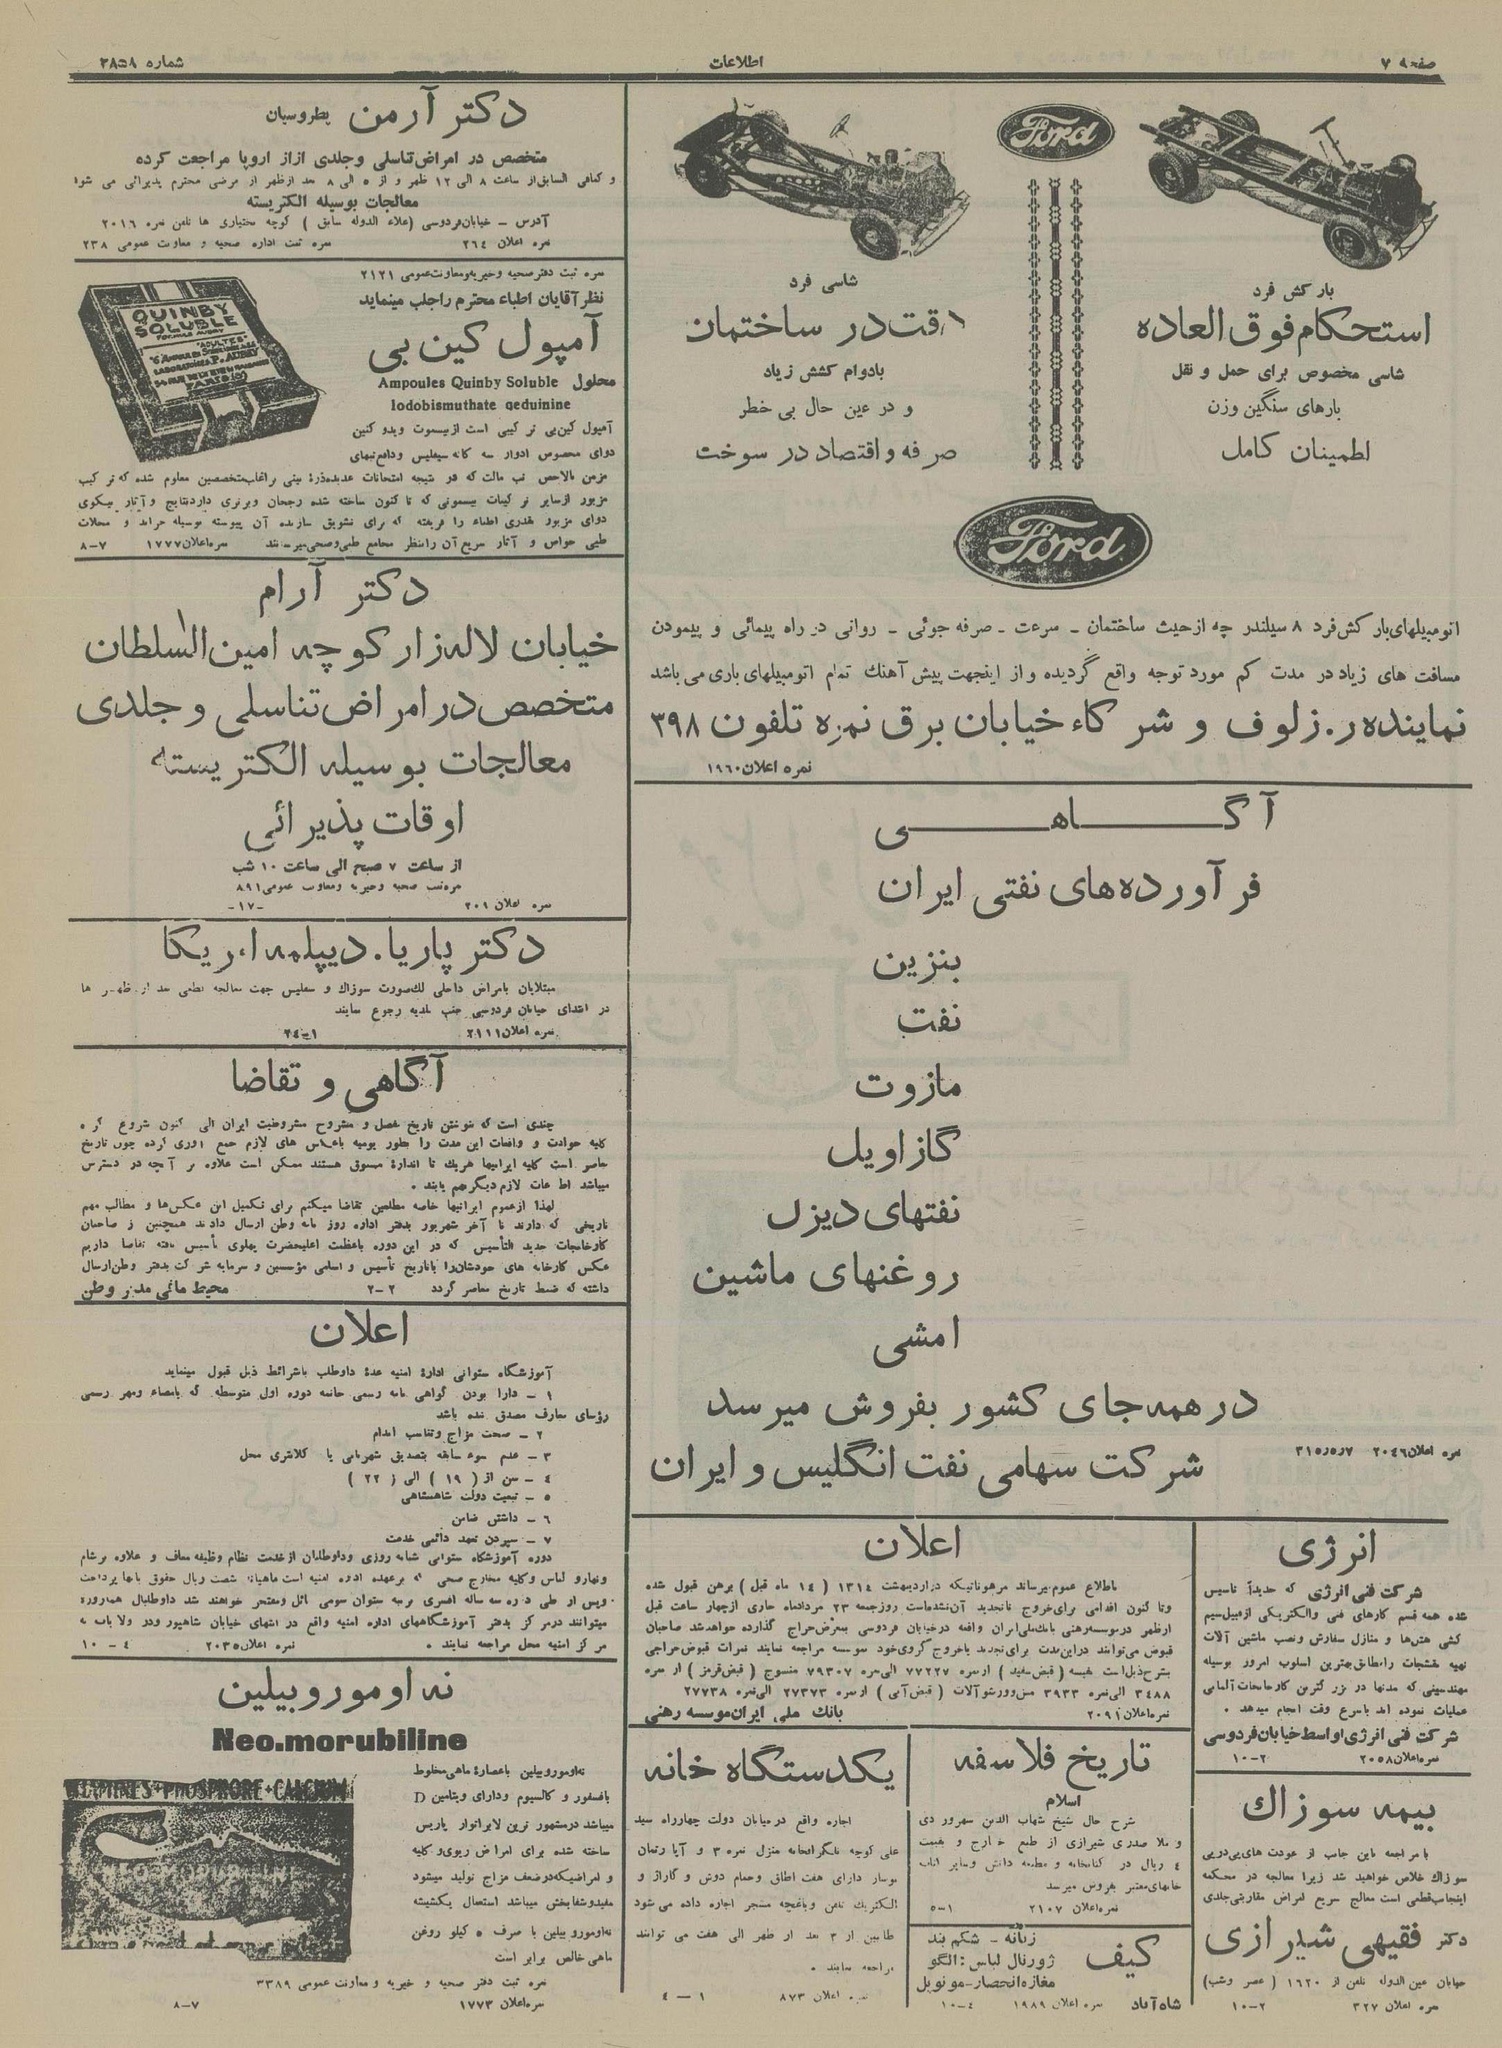 صفحه ۷
اطلاعات
شماره ۲۸۵۸
Ford
بارکش فرد
استحکام فوق العاده
شاسی مخصوص برای حمل و نقل
بارهای سنگین وزن
اطمینان کامل
شاسی فرد
دقت در ساختمان
بادوام کشش زیاد
و در عین حال بی خطر
صرفه و اقتصاد در سوخت
Ford
اتومبیلهای بارکش فرد ۸ سیلندر چه از حیث ساختمان ـ سرعت ـ صرفه جوئی ـ روانی در راه پیمائی و پیمودن
مسافت های زیاد در مدت کم مورد توجه واقع گردیده و از اینجهت پیش آهنك تمام اتومبیلهای باری می باشد
نماینده ر. زلوف و شرکاء خیابان برق نمره تلفون ۳۹۸
نمره اعلان ۱۹۶۰
آگاهی
فرآورده‌های نفتی ایران
بنزین
نفت
مازوت
گازاویل
نفتهای دیزل
روغنهای ماشین
امشی
در همه جای کشور بفروش میرسد
شرکت سهامی نفت انگلیس و ایران
نمره اعلان ۲۰۴۶ ۳۱۵٫۵٫۷
دکتر آرمن پطروسیان
متخصص در امراض تناسلی و جلدی ازاز اروپا مراجعت کرده
و کمافی السابق از ساعت ۸ الی ۱۲ ظهر و از ۵ الی ۸ بعد از ظهر از مرضی محترم پذیرائی می شود
معالجات بوسیله الکتریسته
آدرس ـ خیابان فردوسی (علاء الدوله سابق ) کوچه بختیاری ها تلفن نمره ۲۰۱۶
نمره اعلان ۲۶۴ نمره ثبت اداره صحیه و معاونت عمومی ۲۳۸
نمره ثبت دفتر صحیه و خیریه و معاونت عمومی ۲۱۲۱
نظر آقایان اطباء محترم را جلب مینماید
آمپول کین بی
محلول Ampoules Quinby Soluble
Iodobismuthate qeduinine
QUINBY
SOLUBLE
ADULTES
LABORATOIRES P. AUBRY
PARIS
آمپول کین بی ترکیبی است از بیسموت ویدو کنین
دوای مخصوص ادوار سه گانه سیفلیس و دافع تبهای
مزمن بالاخص تب مالت که در نتیجه امتحانات عدیده معلوم شده که ترکیب
مزبور از سایر ترکیبات بیسموتی که تا کنون ساخته شده رجحان و برتری دارد نتایج و آثار نیکوی
دوای مزبور بقدری اطباء را فریفته که برای تشویق سازنده آن پیوسته بوسیله جراید و مجلات
طبی خواص و آثار سریع آن را بنظر مجامع طبی و صحی میرسانند نمره اعلان ۱۷۷۷ ۸-۷
دکتر آرام
خیابان لاله زار کوچه امین السلطان
متخصص در امراض تناسلی و جلدی
معالجات بوسیله الکتریسته
اوقات پذیرائی
از ساعت ۷ صبح الی ساعت ۱۰ شب
نمره ثبت صحیه و خیریه و معاونت عمومی ۸۹۱
نمره اعلان ۲۰۱ -۱۷-
دکتر پاریا. دیپلمه امریکا
مبتلایان بامراض داخلی سوزاك و سفلیس جهت معالجه قطعی بعد از ظهر ها
در ابتدای خیابان فردوسی جنب بلدیه رجوع نمایند
نمره اعلان ۲۱۱۱ ۲۴-۱
آگاهی و تقاضا
چندی است که بنوشتن تاریخ مفصل و مشروح مشروطیت ایران الی کنون شروع کرده
کلیه حوادث و واقعات این مدت را بطور یومیه با عکس های لازم جمع آوری کرده چون تاریخ
حاضر است کلیه ایرانیها هریك تا اندازهٔ مسبوق هستند ممکن است علاوه بر آنچه در دسترس
میباشد اطلاعات لازم دیگر هم یابند .
لهذا از عموم ایرانیها خاصه مطلعین تقاضا میکنم برای تکمیل این عکس‌ها و مطالب مهم
تاریخی که دارند تا آخر شهریور بدفتر اداره روزنامه وطن ارسال دارند همچنین از صاحبان
کارخانجات جدید التأسیس که در این دوره باعظمت اعلیحضرت پهلوی تأسیس یافته تقاضا داریم
عکس کارخانه های خودشان را با تاریخ تأسیس و اسامی مؤسسین و سرمایه شرکت بدفتر وطن ارسال
داشته که ضبط تاریخ معاصر گردد ۲-۲ محیط مافی مدیر وطن
اعلان
آموزشگاه ستوانی ادارهٔ امنیه عدهٔ داوطلب باشرائط ذیل قبول مینماید
۱ ـ دارا بودن گواهی نامه رسمی خاتمه دوره اول متوسطه که بامضاء ومهر رسمی
رؤسای معارف مصدق شده باشد
۲ ـ صحت مزاج وتناسب اندام
۳ ـ عدم سوء سابقه بتصدیق شهربانی یا کلانتری محل
۴ ـ سن از ( ۱۹ ) الی ( ۲۲ )
۵ ـ تبعیت دولت شاهنشاهی
۶ ـ داشتن ضامن
۷ ـ سپردن تعهد دائمی خدمت
دوره آموزشگاه ستوانی شبانه روزی و داوطلبان از خدمت نظام وظیفه معاف و علاوه بر شام
ونهار و لباس وکلیه مخارج صحی که بر عهده اداره امنیه است ماهیانه شصت ریال حقوق بانها پرداخت
وپس از طی دوره سه ساله افسری برتبه ستوان سومی نائل ومفتخر خواهند شد داوطلبان همه روزه
میتوانند در مرکز بدفتر آموزشگاههای اداره امنیه واقع در انتهای خیابان شاهپور ودر ولایات به
مرکز امنیه محل مراجعه نمایند . نمره اعلان ۲۰۳۵ ۱۰ - ۴
نه اوموروبیلین
Neo.morubiline
VITAMINES+PHOSPHORE+CALCIUM
نه اوموروبیلین با عصارهٔ ماهی مخلوط
بافسفور و کالسیوم ودارای ویتامین D
میباشد در مشهور ترین لابراتوار پاریس
ساخته شده برای امراض ریوی و کلیه
و امراضیکه در ضعف مزاج تولید میشود
مفید وشفابخش میباشد استعمال یکشیشه
نه اوموروبیلین با صرف ۵ کیلو روغن
ماهی خالص برابر است
نمره ثبت دفتر صحیه و خیریه و معاونت عمومی ۳۳۸۹
نمره اعلان ۱۷۷۳ ۸-۷
انرژی
شرکت فنی انرژی که جدیداً تاسیس
شده همه قسم کارهای فنی والکتریکی از قبیل سیم
کشی هتل‌ها و منازل سفارش ونصب ماشین آلات
تهیه نقشجات را مطابق بهترین اسلوب امروز بوسیله
مهندسینی که مدتها در بزرگترین کارخانجات آلمانی
عملیات نموده اند باسرع وقت انجام میدهد .
شرکت فنی انرژی اواسط خیابان فردوسی
نمره اعلان ۲۰۵۸ ۱۰-۲
بیمه سوزاك
با مراجعه باین جانب از عودت های پی در پی
سوزاك خلاص خواهید شد زیرا معالجه در محکمه
اینجانب قطعی است معالج سریع امراض مقاربتی جلدی
دکتر فقیهی شیرازی
خیابان عین الدوله تلفن از ۱۶۲۰ ( عصر وشب)
نمره اعلان ۳۲۷ ۱۰-۲
اعلان
باطلاع عموم میرساند مرهوناتیکه در اردیبهشت ۱۳۱۴ ( ۱۴ ماه قبل ) برهن قبول شده
وتا کنون اقدامی برای خروج یا تجدید آن نشده است روز جمعه ۲۳ مرداد ماه جاری از چهار ساعت قبل
از ظهر در موسسه رهنی بانك ملی ایران واقعه در خیابان فردوسی بمعرض حراج گذارده خواهد شد صاحبان
قبوض می‌توانند در این مدت برای تجدید یا خروج گروی خود بموسسه مراجعه نمایند نمرات قبوض حراجی
بشرح ذیل است نفیسه ( قبض سفید ) از نمره ۷۷۲۲۷ الی نمره ۷۹۳۰۷ منسوج ( قبض قرمز ) از نمره
۳۴۸۸ الی نمره ۳۹۳۳ مس و ورشو آلات ( قبض آبی ) از نمره ۲۷۳۷۳ الی نمره ۲۷۷۳۸
نمره اعلان ۲۰۹۱ بانك ملی ایران موسسه رهنی
تاریخ فلاسفه
اسلام
شرح حال شیخ شهاب الدین سهروردی
و ملا صدری شیرازی از طبع خارج و بقیمت
۴ ریال در کتابخانه و مطبعه دانش وسایر کتاب
خانهای معتبر بفروش میرسد
نمره اعلان ۲۱۰۷ ۵-۱
کیف
زنانه ـ شکم بند
ژورنال لباس: الگو
مغازه انحصار-مونوپل
شاه آباد نمره اعلان ۱۹۸۹ ۱۰-۴
یکدستگاه خانه
اجاره واقع در خیابان دولت چهارراه سید
علی کوچه تلگرافخانه منزل نمره ۳ و آپارتمان
نوساز دارای هفت اطاق وحمام دوش و گاراژ و
الکتریك تلفن وباغچه مشجر اجاره داده می شود
طالبین از ۳ بعد از ظهر الی هفت می توانند
مراجعه نمایند .
نمره اعلان ۸۷۳ ۴ - ۱